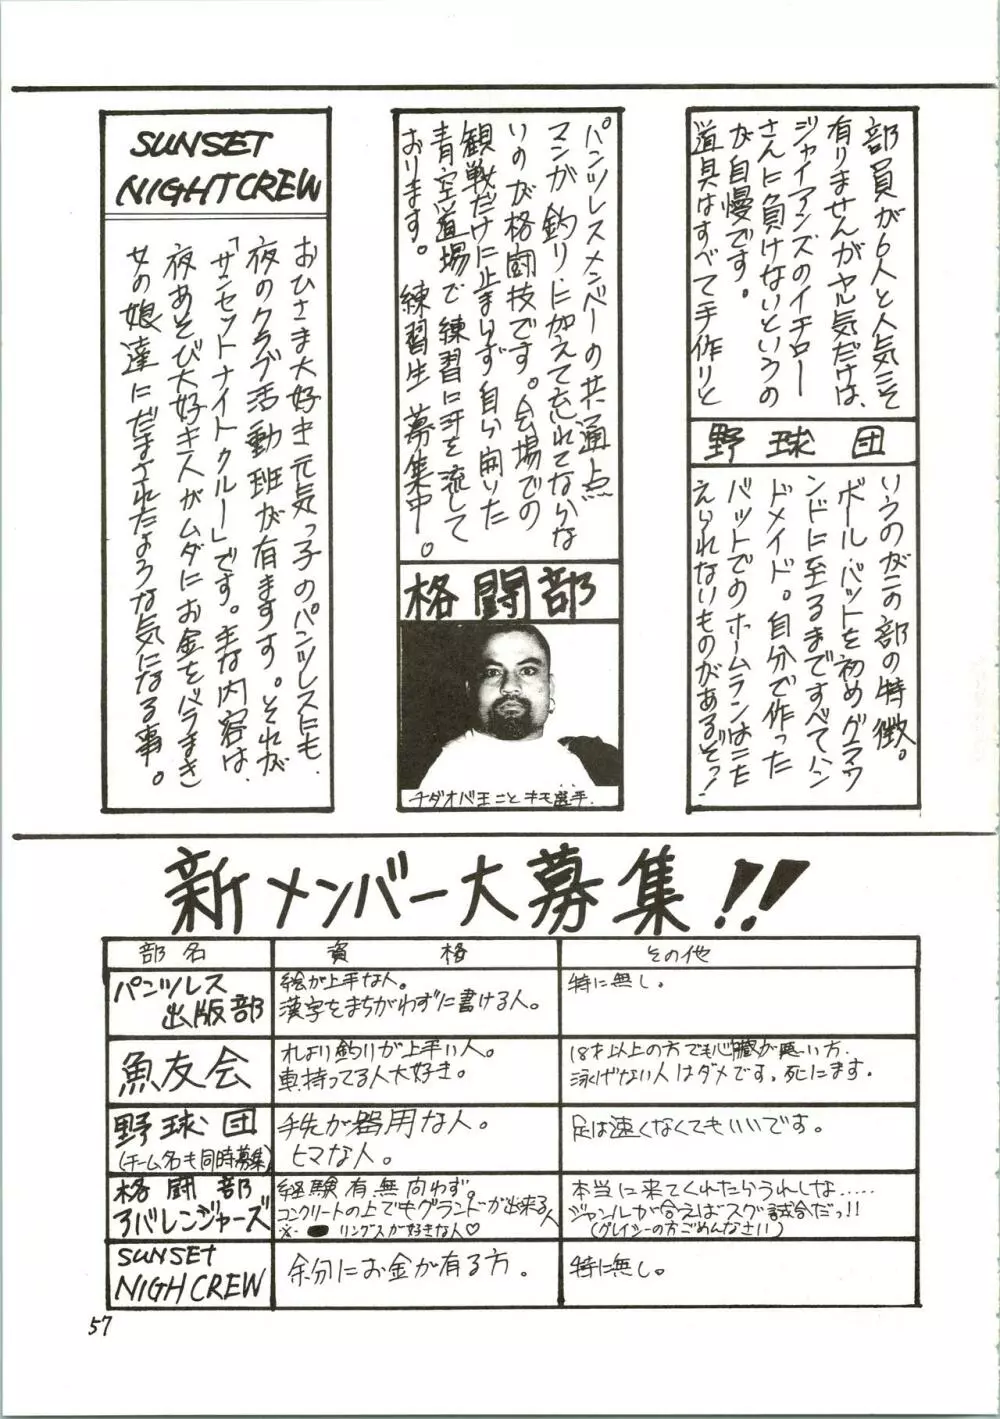 部員が6人と人気こそ
有りませんがヤル気だけは、
ジャイアンズのイチロー
さんに負けないというの
が自慢です。
道具はすべて手作りと
野球団
いうのがこの部の特徴。
ボール、バットを初めグラウ
ンドに至るまですべてハン
ドメイド。自分で作った
バットでのホームランはこた
えられないものがあるぞっ!
パンツレスメンバーの共通点
マンガ、釣り、に加えて忘れてならな
いのが格闘技です。会場での
観戦だけに止まらず自ら開いた
青空道場で練習に汗を流して
おります。練習生募集中。
格闘部
チダオバ王ことキモ選手.
SUNSET
NIGHTCREW
おひさま大好き元気っ子のパンツレスにも、
夜のクラブ活動班が有ますす。それが
「サンセットナイトクルー」です。主な内容は、
夜あそび大好き人がムダにお金をバラまき
女の娘達にだまされたような気になる事。
新メンバー大募集!!
部名 資格 その他
パンツレス
出版部
絵が上手な人。
漢字をまちがわずに書ける人。
特に無し。
魚友会
れより釣りが上手い人。
車持ってる人大好き。
18才以上の方でも心臓が悪い方、
泳げない人はダメです。死にます。
野球団
(チーム名も同時募集)
手先が器用な人。
ヒマな人。
足は速くなくてもいいです。
格闘部
アバレンジャーズ
経験有無向わず。
コンクリートの上でもグランドが出来る人
※ リングスが好きな人♡
本当に来てくれたらうれしな.....
ジャンルが合えばスグ試合だっ!!
(グレイシーの方ごめんなさい)
SUNSET
NIGHCREW
余分にお金が有る方。
特に無し。
57